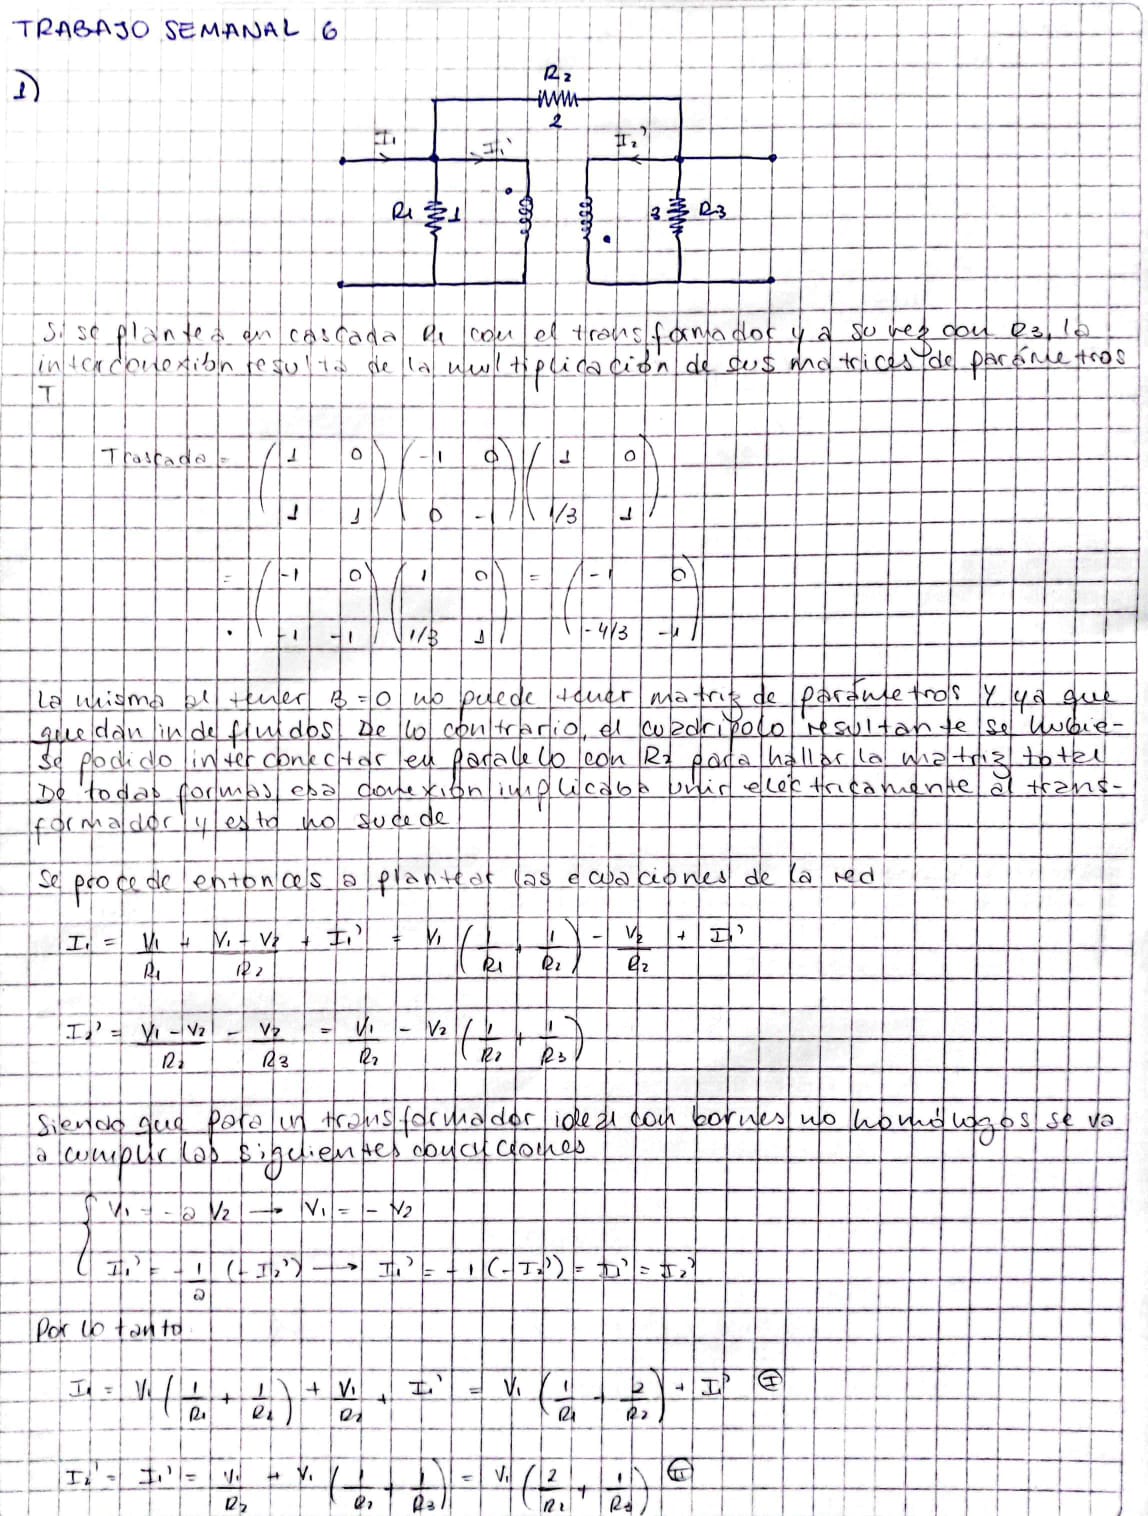 TRABAJO SEMANAL 6
1)
R2
2
I1 I1' I2'
R1 1 3 R3
Si se plantea en cascada R1 con el transformador y a su vez con R3, la
interconexión resulta de la multiplicación de sus matrices de parámetros
T
Tcascada = ( 1 0 ) ( -1 0 ) ( 1 0 )
( 1 1 ) ( 0 -1 ) ( 1/3 1 )
= ( -1 0 ) ( 1 0 ) = ( -1 0 )
( -1 -1 ) ( 1/3 1 ) ( -4/3 -1 )
La misma al tener B=0 no puede tener matriz de parámetros Y ya que
quedan indefinidos De lo contrario, el cuadripolo resultante se hubie-
se podido interconectar en paralelo con R2 para hallar la matriz total
De todas formas esa conexión implicaba unir eléctricamente al trans-
formador y esto no sucede
Se procede entonces a plantear las ecuaciones de la red
I1 = V1/R1 + (V1 - V2)/R2 + I1' = V1 (1/R1 + 1/R2) - V2/R2 + I1'
I2' = (V1 - V2)/R2 - V2/R3 = V1/R2 - V2 (1/R2 + 1/R3)
Siendo que para un transformador ideal con bornes no homólogos se va
a cumplir las siguientes condiciones
{ V1 = -a V2 → V1 = - V2
I1' = -1/a (-I2') → I1' = -1 (-I2') = I1' = I2'
Por lo tanto
I1 = V1 (1/R1 + 1/R2) + V1/R2 + I1' = V1 (1/R1 + 2/R2) + I1' Ⓘ
I2' = I1' = V1/R2 + V1 (1/R2 + 1/R3) = V1 (2/R2 + 1/R3) Ⅱ